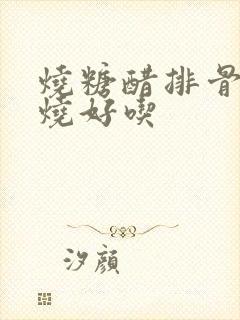 燒糖醋排骨
燒好喫
汐顔